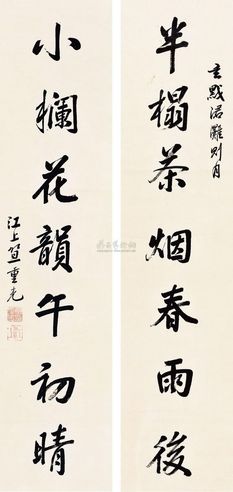 玄黓涒灘則月
半榻茶烟春雨後
小欄花韻午初晴
江上笪重光